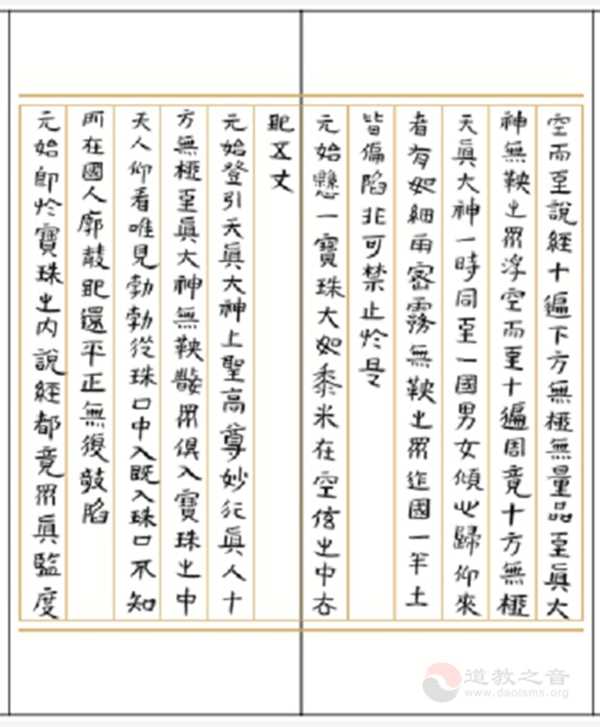 空而至說經十遍下方無極無量品至眞大
神無鞅之眾浮空而至十遍周竟十方無極
天眞大神一時同至一國男女傾心歸仰來
者有如細雨密霧無鞅之眾迮國一半土
皆偏陷非可禁止於是
元始懸一寶珠大如黍米在空玄之中去
地五丈
元始登引天眞大神上聖高尊妙行眞人十
方無極至眞大神無鞅數眾俱入寶珠之中
天人仰看唯見勃勃從珠口中入既入珠口不知
所在國人廓散地還平正無復敧陷
元始即於寶珠之內說經都竟眾眞監度
道教之音
www.daoisms.org